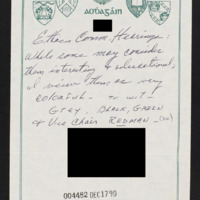 AODAGÁIN
Ethics Comm. Hearings:
While some may consider
them interesting & educational,
I view them as very
COLORFUL - to wit -
GREY, BLACK, GREEN
& Vice Chair REDMAN -
004482 DEC1790